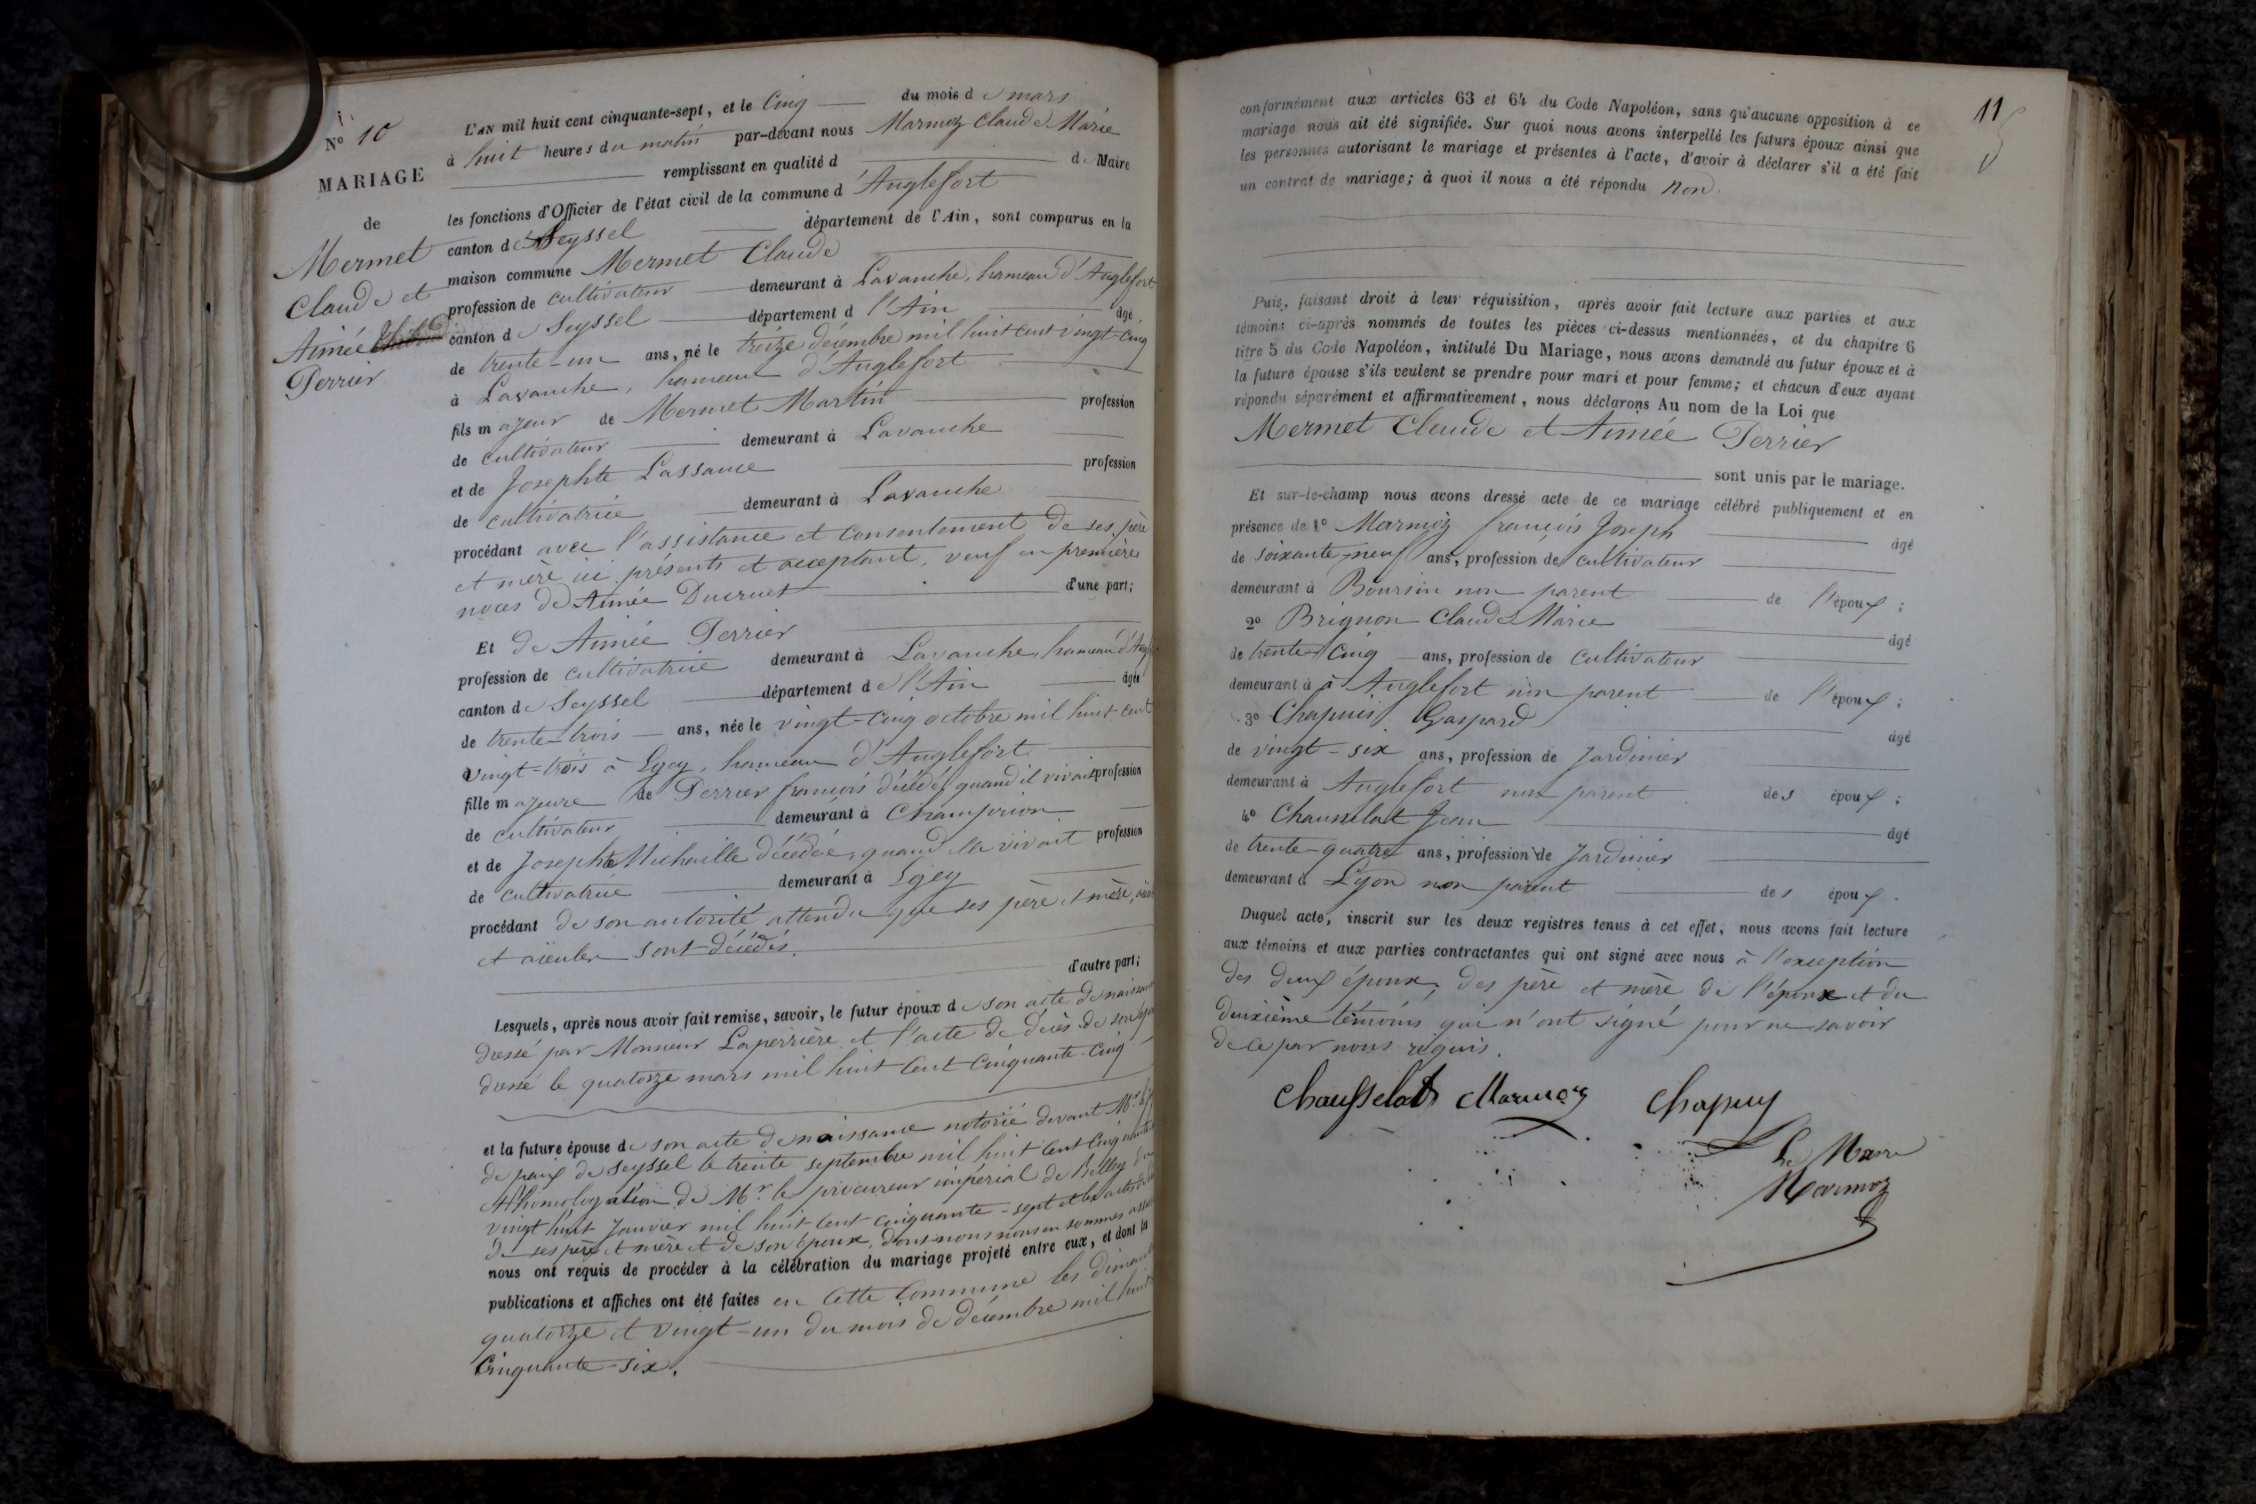 N° 10
MARIAGE
de
Mermet
Claude et
Aimée
Perrier
L'AN mil huit cent cinquante-sept, et le Cinq du mois de mars
à huit heures du matin par-devant nous Marmoz Claude Marie
remplissant en qualité d de Maire
les fonctions d'Officier de l'état civil de la commune d'Anglefort
canton de Seyssel département de l'Ain, sont comparus en la
maison commune Mermet Claude
profession de cultivateur demeurant à Lavanche, hameau d'Anglefort
canton de Seyssel département d l'Ain âgé
de trente-un ans, né le treize décembre mil huit cent vingt-cinq
à Lavanche, hameau d'Anglefort
fils majeur de Mermet Martin profession
de cultivateur demeurant à Lavanche
et de Josephte Lassance profession
de cultivatrice demeurant à Lavanche
procédant avec l'assistance et consentement de ses père
et mère ici présents et acceptant, veuf en premières
noces de Aimée Ducruet d'une part;
Et de Aimée Perrier
profession de cultivatrice demeurant à Lavanche, hameau d'Ang
canton de Seyssel département de l'Ain âgée
de trente-trois ans, née le vingt-cinq octobre mil huit cent
vingt-trois à Lgey, hameau d'Anglefort
fille majeure de Perrier françois décédé, quand il vivait profession
de cultivateur demeurant à
et de Josephte Michaille décédée, quand elle vivait profession
de cultivatrice demeurant à Lgey
procédant de son autorité attendu que ses père et mère,
et aïeules sont décédés.
d'autre part;
Lesquels, après nous avoir fait remise, savoir, le futur époux de son acte de naissance
dressé par Monsieur Laperrière et l'acte de décès de son
dressé le quatorze mars mil huit cent cinquante-cinq
et la future épouse de son acte de naissance notorié devant Mr
de paix de Seyssel le trente septembre mil huit cent cinquante
et homologation de Mr. le procureur impérial de Belley du
vingt huit Janvier mil huit cent cinquante-sept et les actes
de ses père et mère et de son époux, dont nous nous en sommes
nous ont requis de procéder à la célébration du mariage projeté entre eux, et dont les
publications et affiches ont été faites en cette commune les dimanches
quatorze et vingt-un du mois de décembre mil huit
Cinquante-six.
11
conformément aux articles 63 et 64 du Code Napoléon, sans qu'aucune opposition à ce
mariage nous ait été signifiée. Sur quoi nous avons interpellé les futurs époux ainsi que
les personnes autorisant le mariage et présentes à l'acte, d'avoir à déclarer s'il a été fait
un contrat de mariage; à quoi il nous a été répondu Non.
Puis, faisant droit à leur réquisition, après avoir fait lecture aux parties et aux
témoins ci-après nommés de toutes les pièces ci-dessus mentionnées, et du chapitre 6
titre 5 du Code Napoléon, intitulé Du Mariage, nous avons demandé au futur époux et à
la future épouse s'ils veulent se prendre pour mari et pour femme; et chacun d'eux ayant
répondu séparément et affirmativement, nous déclarons Au nom de la Loi que
Mermet Claude et Aimée Perrier
sont unis par le mariage.
Et sur-le-champ nous avons dressé acte de ce mariage célébré publiquement et en
présence de 1° Marmoz françois Joseph âgé
de soixante-neuf ans, profession de cultivateur
demeurant à Boursin non parent de l'époux;
2° Brignon Claude Marie âgé
de trente-cinq ans, profession de cultivateur
demeurant à à Anglefort non parent de l'époux;
3° Chapuis Gaspard âgé
de vingt-six ans, profession de Jardinier
demeurant à Anglefort non parent des époux;
4° Chausselat Jean âgé
de trente-quatre ans, profession de Jardinier
demeurant à Lyon non parent des époux.
Duquel acte, inscrit sur les deux registres tenus à cet effet, nous avons fait lecture
aux témoins et aux parties contractantes qui ont signé avec nous à l'exception
des deux époux, des père et mère de l'époux et du
deuxième témoins qui n'ont signé pour ne savoir
de ce par nous requis.
Chausselat Marmoz Chapuy
Le Maire
Marmoz